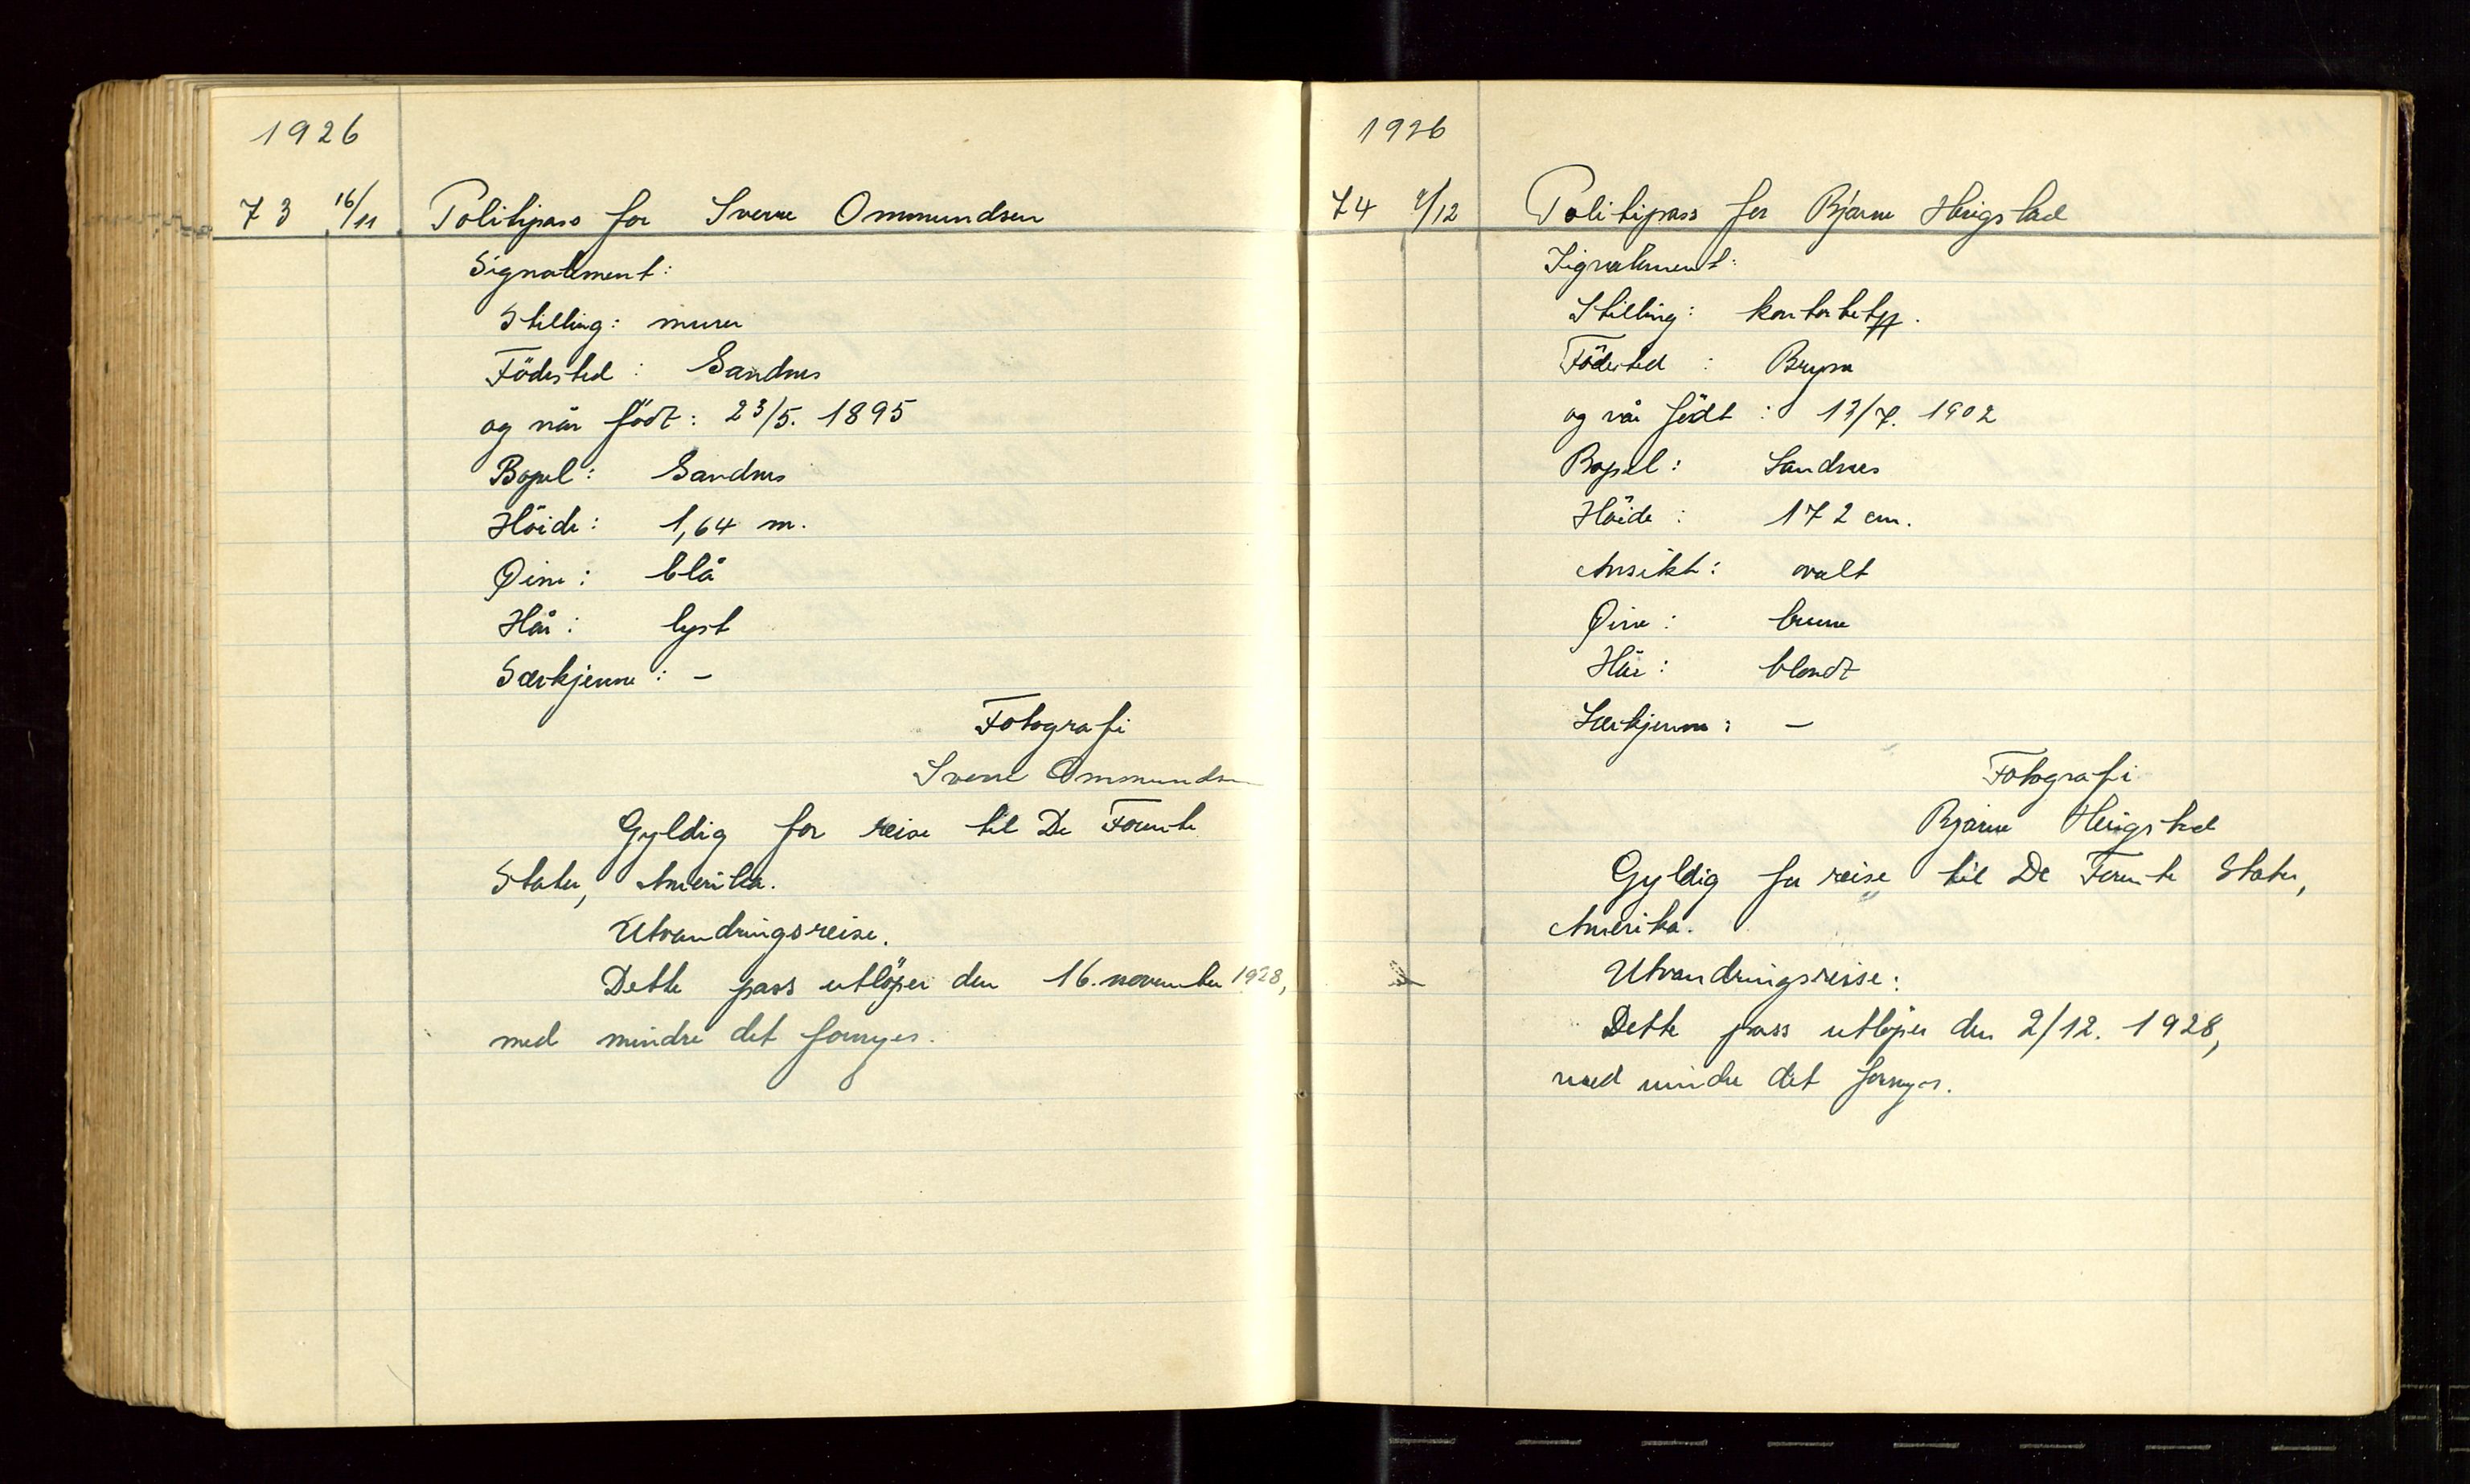 1926
73 16/11 Politipass for Sverre Ommundsen
Signalement:
Stilling: murer
Födested: Sandnes
og når födt: 23/5. 1895
Bopel: Sandnes
Höide: 1,64 m.
Øine: blå
Hår: lyst
Særkjenne: –
Fotografi
Sverre Ommundsen
Gyldig for reise til De Forente
Stater, Amerika.
Utvandringsreise.
Dette pass utlöper den 16. november 1928,
med mindre det fornyes.
1926
74 2/12 Politipass for Bjarne Heigstad
Signalement:
Stilling: kontorbetj.
Födested: Bryne
og når födt: 13/7. 1902
Bopel: Sandnes
Höide: 172 cm.
Ansikt: ovalt
Øine: brune
Hår: blondt
Særkjenne: –
Fotografi
Bjarne Heigstad
Gyldig for reise til De Forente Stater,
Amerika.
Utvandringsreise.
Dette pass utlöper den 2/12. 1928,
med mindre det fornyes.